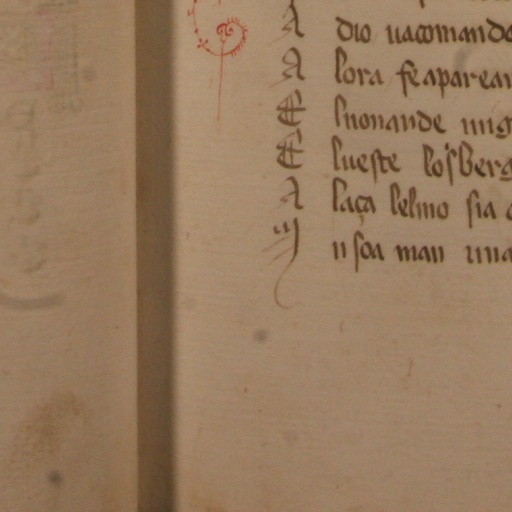 A dio uacomando
A lora se aparear
E luonande mig
E lueste losberg
A laça lelmo sia
I n soa man una